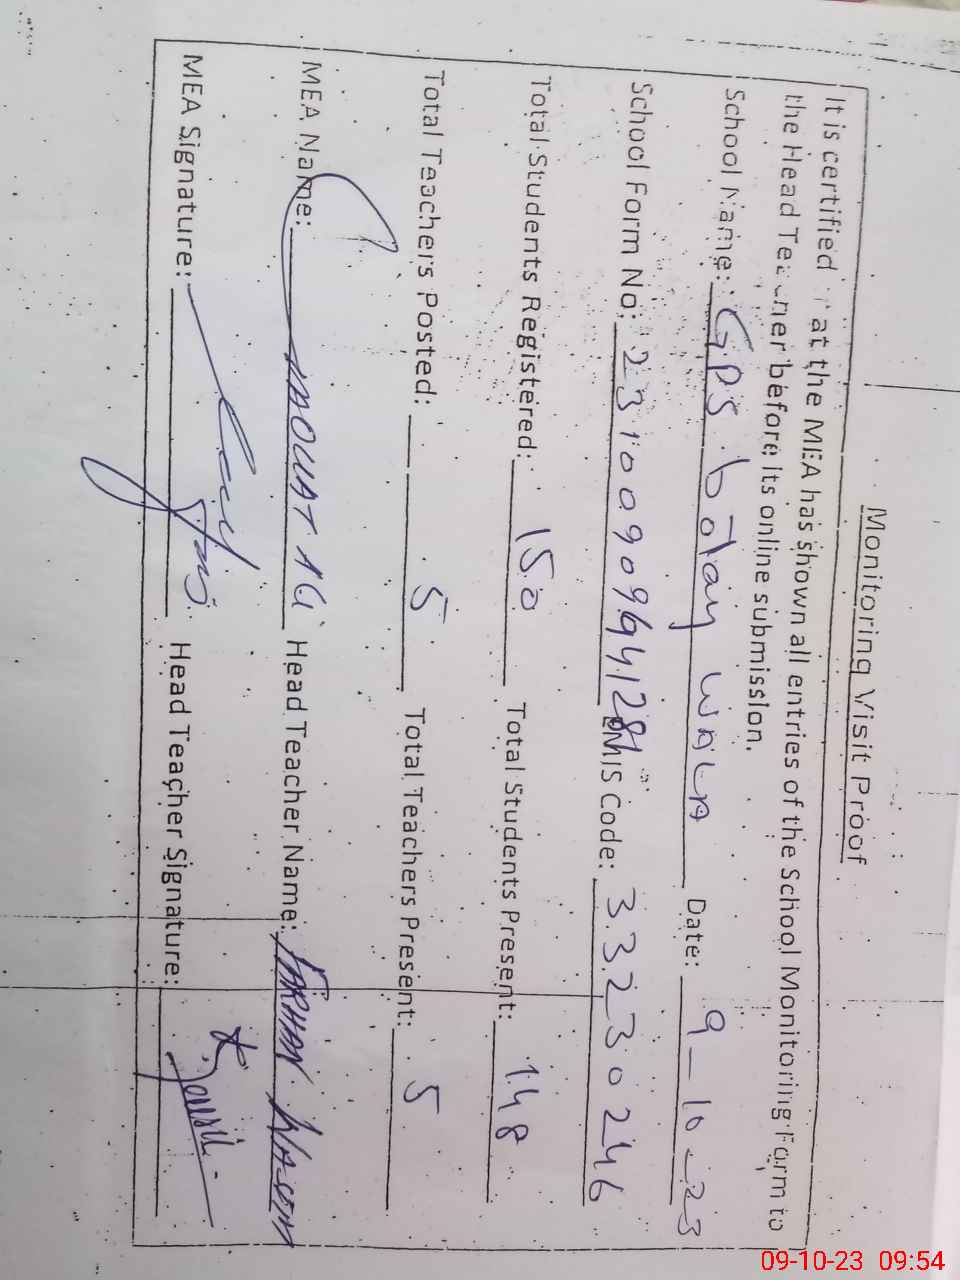 Monitoring Visit Proof
It is certified that the MEA has shown all entries of the School Monitoring Form to
the Head Teacher before its online submission.
School Name: GPS botay WALA Date: 9-10-23
School Form No: EMIS Code: 33230246
Total Students Registered: 150 Total Students Present: 148
Total Teachers Posted: 5 Total Teachers Present: 5
MEA Name: Head Teacher Name: FARHAN
MEA Signature: Head Teacher Signature:
09-10-23 09:54